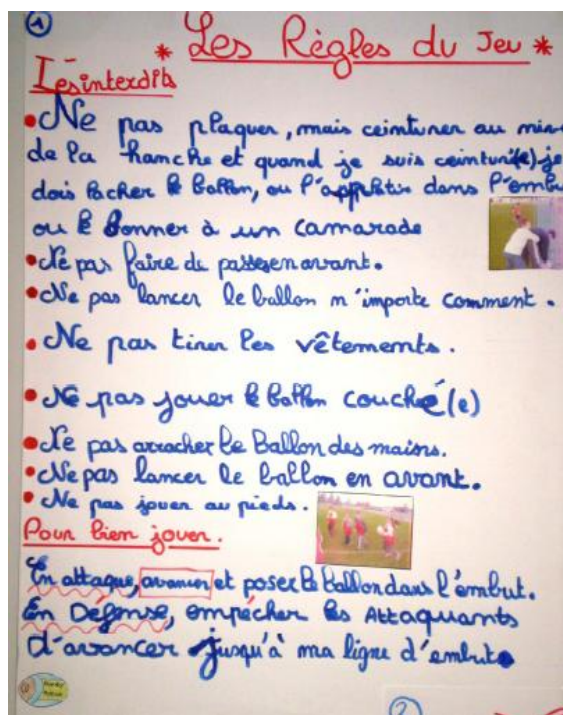 1
* Les Règles du Jeu *
Les interdits
• Ne pas plaquer, mais ceinturer au
de la hanche et quand je suis ceinturé(e) je
dois lacher le ballon, ou l'applatir dans l'embu
ou le donner à un camarade
• Ne pas faire de passes en avant.
• Ne pas lancer le ballon n'importe comment.
• Ne pas tirer les vêtements.
• Ne pas jouer le ballon couché(e)
• Ne pas arracher le Ballon des mains.
• Ne pas lancer le ballon en avant.
• Ne pas jouer au pieds.
Pour bien jouer.
En attaque, avancer et poser le ballon dans l'embut.
En Défense, empêcher les Attaquants
d'avancer jusqu'à ma ligne d'embut
2